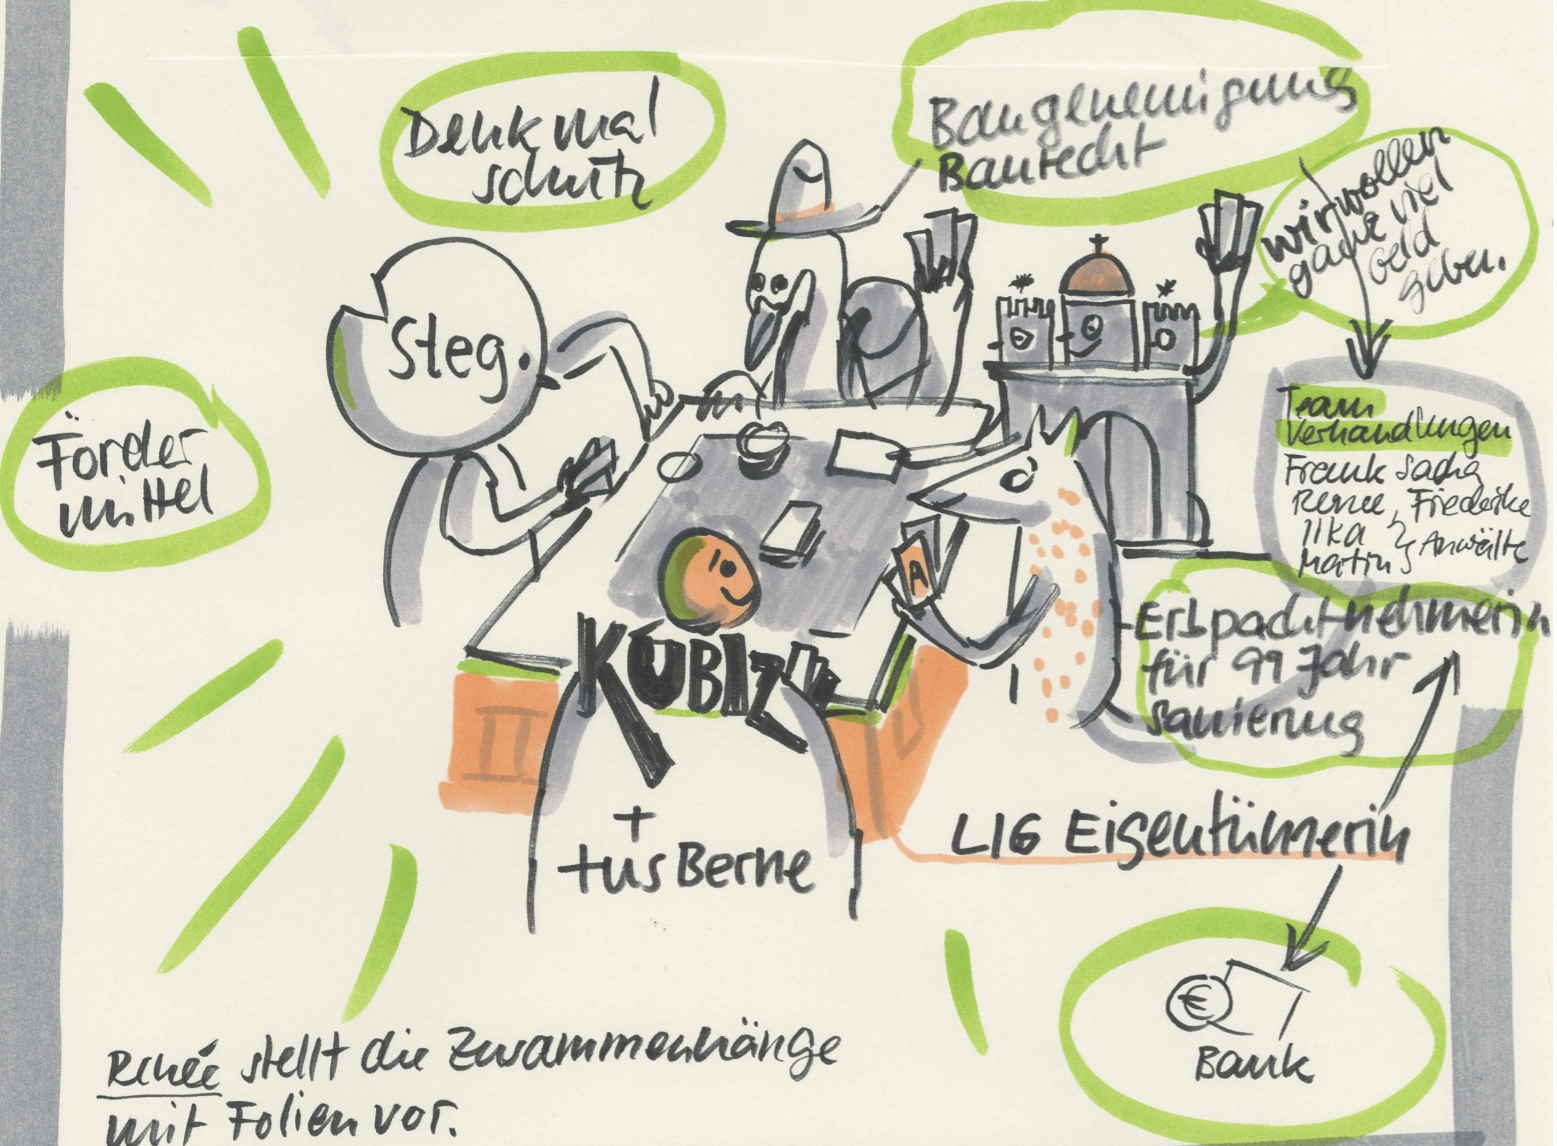 Denkmal
schutz
Baugenemigung
Baurecht
wir wollen
ganz viel
Geld
geben.
Steg.
Förder
mittel
Team
Verhandlungen
Frank Sacha
Renee, Friederike
Ilka
Martin Anwälte
A
KÜBIZ
+
tus Berne
Erbpachtnehmerin
für 99 Jahr
Sanierung
LIG Eigentümerin
€
Bank
Renée stellt die Zusammenhänge
mit Folien vor.